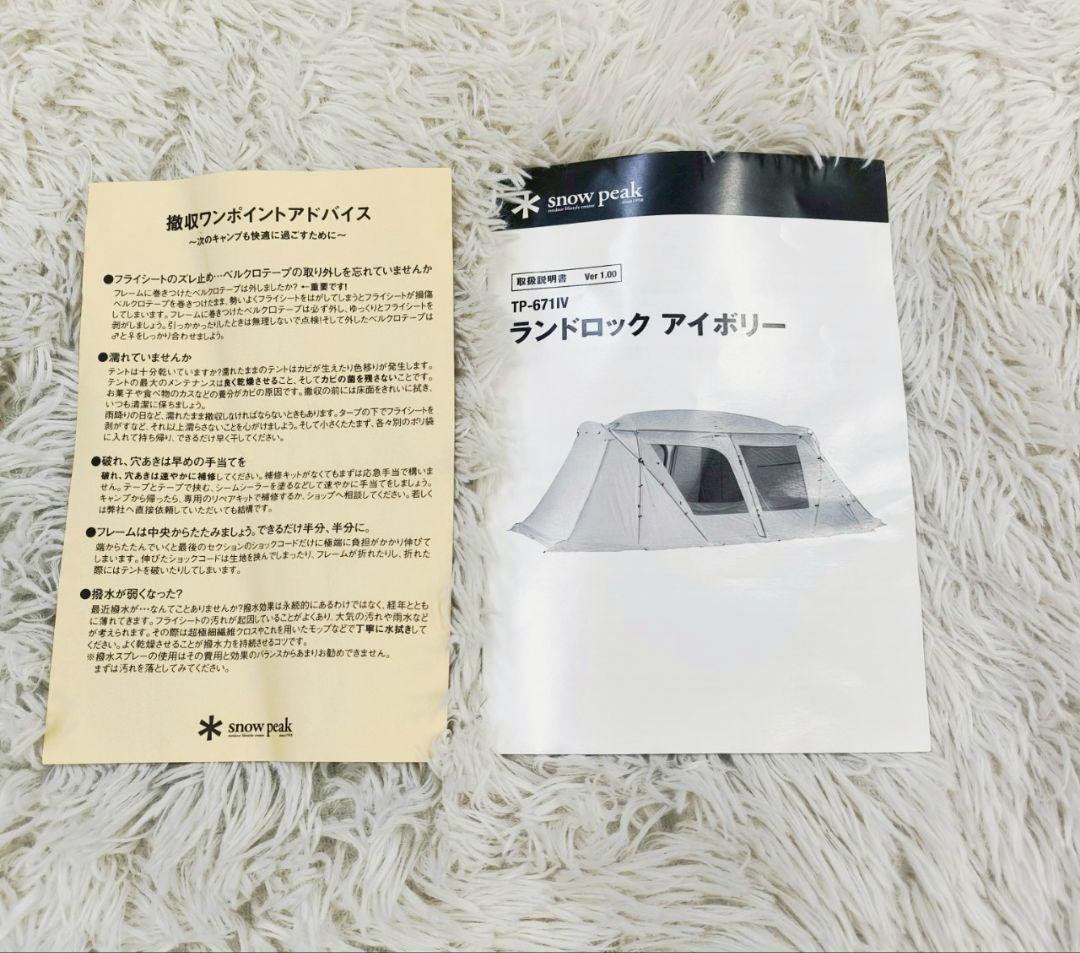 撤収ワンポイントアドバイス
～次のキャンプも快適に過ごすために～
●フライシートのズレ止め…ベルクロテープの取り外しを忘れていませんか
フレームに巻きつけたベルクロテープは外しましたか？←重要です！
ベルクロテープを巻きつけたまま、勢いよくフライシートをはがしてしまうとフライシートが損傷
してしまいます。フレームに巻きつけたベルクロテープは必ず外し、ゆっくりとフライシートを
剥がしましょう。引っかかったりしたときは無理しないで点検！そして外したベルクロテープは
♂と♀をしっかり合わせましょう。
●濡れていませんか
テントは十分乾いていますか？濡れたままのテントはカビが生えたり色移りが発生します。
テントの最大のメンテナンスは良く乾燥させること、そしてカビの菌を残さないことです。
お菓子や食べ物のカスなどの養分がカビの原因です。撤収の前には床面をきれいに拭き、
いつも清潔に保ちましょう。
雨降りの日など、濡れたまま撤収しなければならないときもあります。タープの下でフライシートを
剥がすなど、それ以上濡らさないことを心がけましょう。そして小さくたたまず、各々別のポリ袋
に入れて持ち帰り、できるだけ早く干してください。
●破れ、穴あきは早めの手当てを
破れ、穴あきは速やかに補修してください。補修キットがなくてもまずは応急手当で構いま
せん。テープとテープで挟む、シームシーラーを塗るなどして速やかに手当てをしましょう。
キャンプから帰ったら、専用のリペアキットで補修するか、ショップへ相談してください。若しく
は弊社へ直接依頼していただいても結構です。
●フレームは中央からたたみましょう。できるだけ半分、半分に。
端からたたんでいくと最後のセクションのショックコードだけに極端に負担がかかり伸びて
しまいます。伸びたショックコードは生地を挟んでしまったり、フレームが折れたりし、折れた
際にはテントを破いたりしてしまいます。
●撥水が弱くなった？
最近撥水が…なんてことありませんか？撥水効果は永続的にあるわけではなく、経年ととも
に薄れてきます。フライシートの汚れが起因していることがよくあり、大気の汚れや雨水など
が考えられます。その際は超極細繊維クロスやこれを用いたモップなどで丁寧に水拭きして
ください。よく乾燥させることが撥水力を持続させるコツです。
※撥水スプレーの使用はその費用と効果のバランスからあまりお勧めできません。
まずは汚れを落としてみてください。
snow peak
outdoor lifestyle creator since1958
snow peak
outdoor lifestyle creator since1958
取扱説明書 Ver 1.00
TP-671IV
ランドロック アイボリー